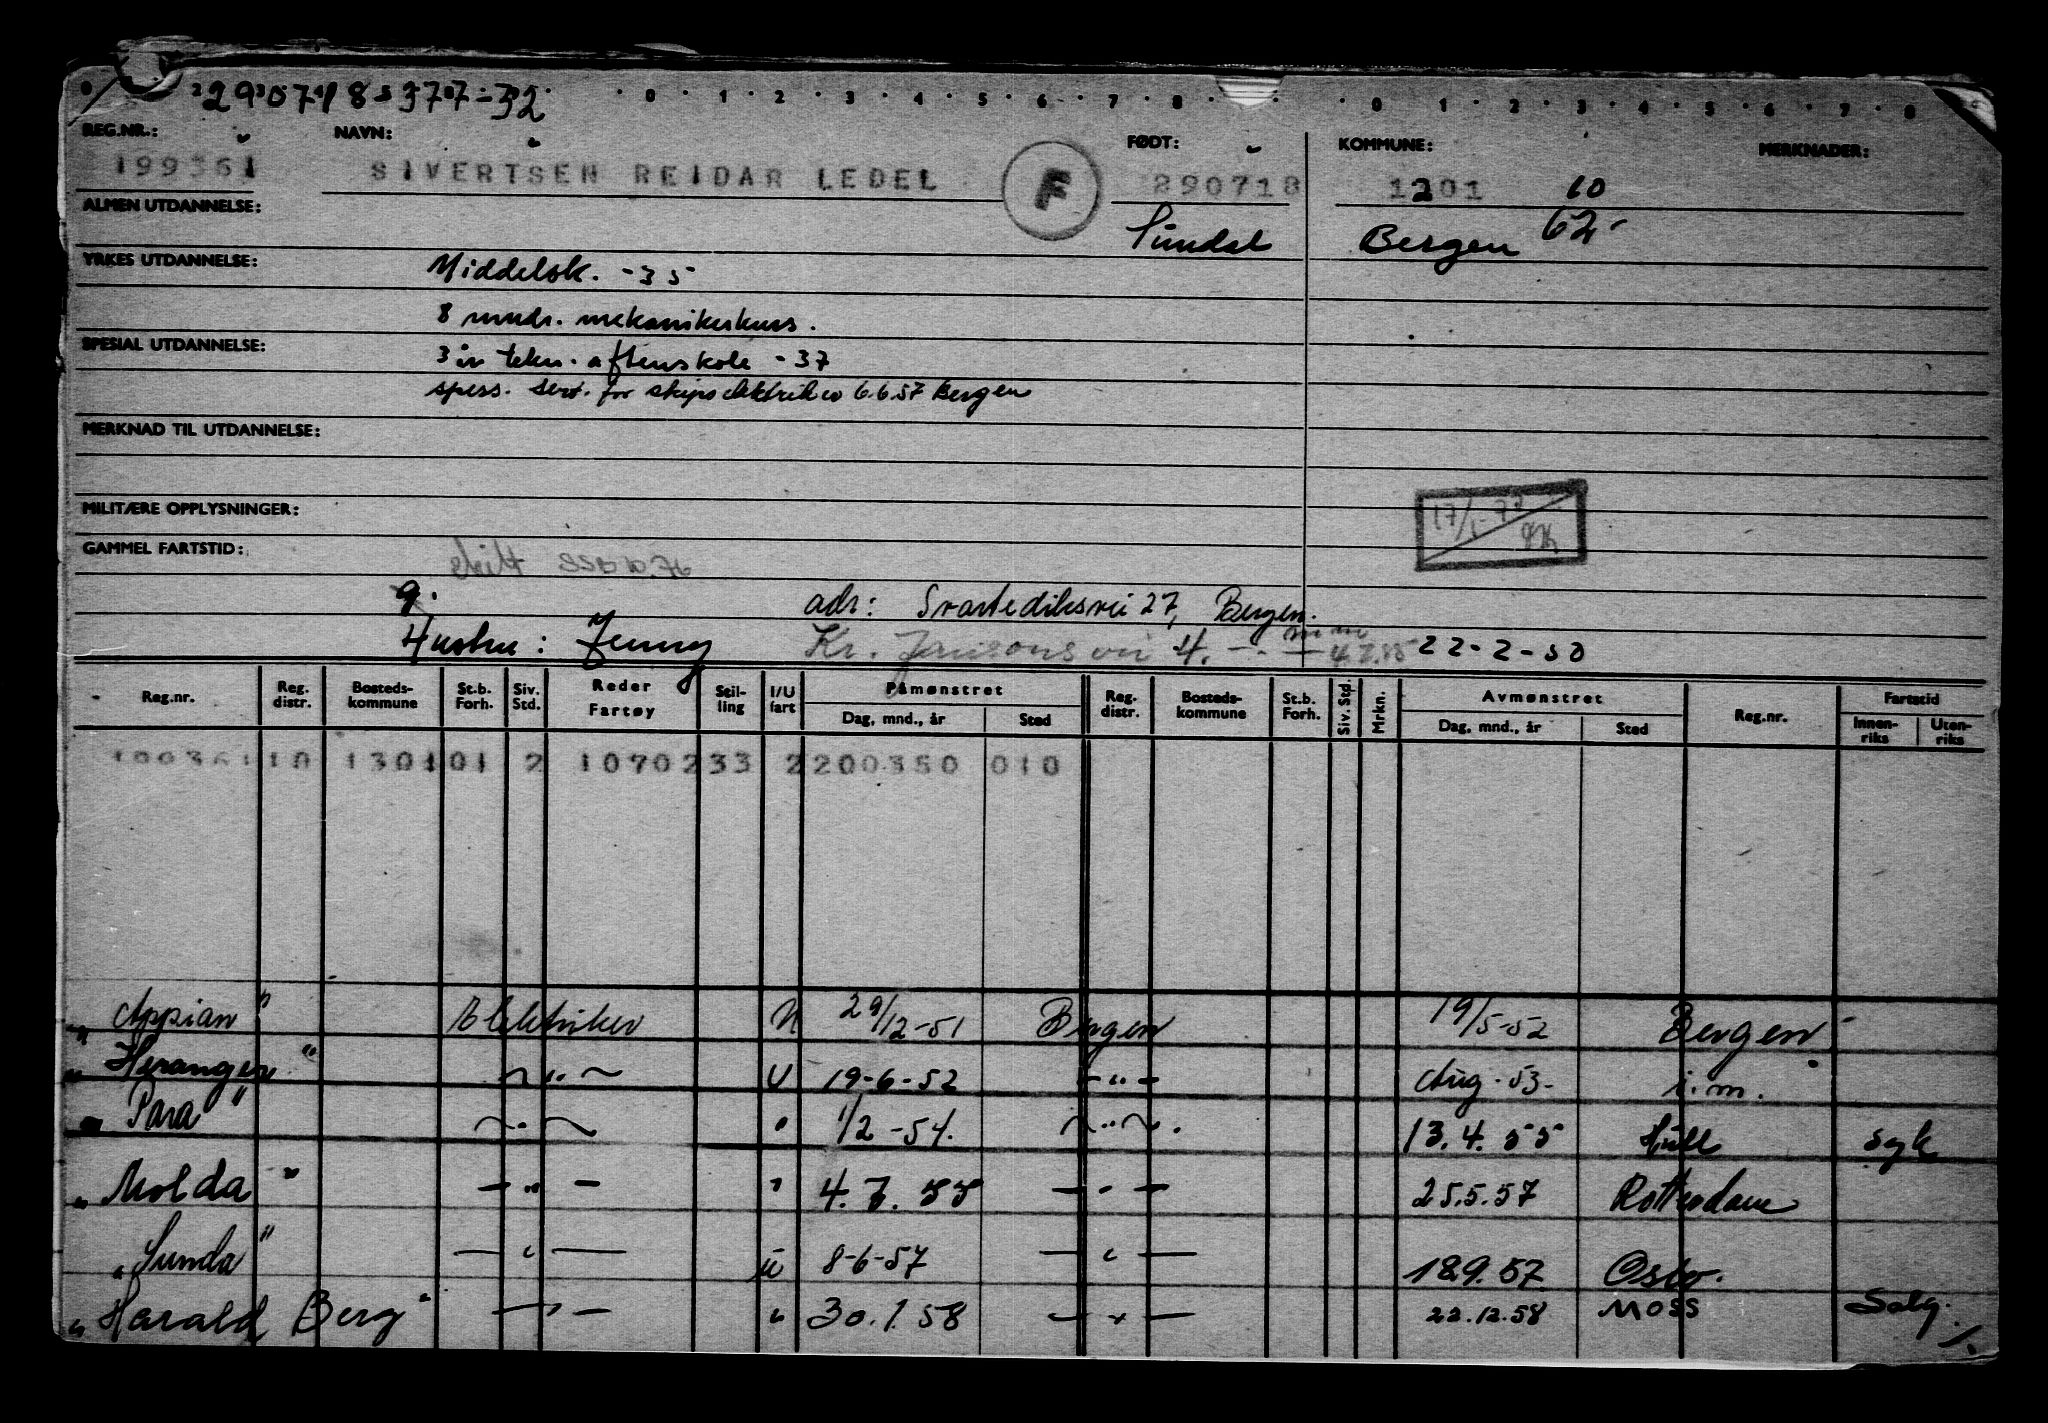 290718 377-32
0 1 2 3 4 5 6 7 8 0 1 2 3 6 7 8
REG.NR.: NAVN: FØDT: KOMMUNE: MERKNADER:
199361 SIVERTSEN REIDAR LEDEL F 290718 1201 10
ALMEN UTDANNELSE: Sundal Bergen 62
YRKES UTDANNELSE: Middelsk. -35
8 mndr. mekanikerkurs.
SPESIAL UTDANNELSE: 3 år tekn. aftenskole -37
spess. sert. for skipselektriker 6.6.57 Bergen
MERKNAD TIL UTDANNELSE:
MILITÆRE OPPLYSNINGER: 17/1-73
GAMMEL FARTSTID:
g. adr: Svartediksvei 27, Bergen.
Hustru: Jenny Kr. Jansons vei 4. 22-2-50
Reg.nr. Reg. distr. Bosteds-kommune St.b. Forh. Siv. Std. Reder Fartøy Stil-ling I/U fart Påmønstret Reg. distr. Bosteds-kommune St.b. Forh. Siv. Std. Mrkn. Avmønstret Reg.nr. Fartstid
Dag, mnd., år Sted Dag, mnd., år Sted Innen-riks Uten-riks
199361 10 1301 01 2 10702 33 2 200350 010
"Appian" Elektriker U 29/12-51 Bergen 19/5-52 Bergen
"Heranger" -"- U 19-6-52 -"- Aug. 53- i.m.
"Para" -"- " 1/2-54. -"-. 13.4.55 Hull syk
"Molda" -"- " 4.7.55 -"- 25.5.57 Rotterdam
"Sunda" -"- U 8-6-57 -"- 18.9.57 Oslo.
"Harald Berg" -"- " 30.1.58 -"- 22.12.58 Moss Salg.